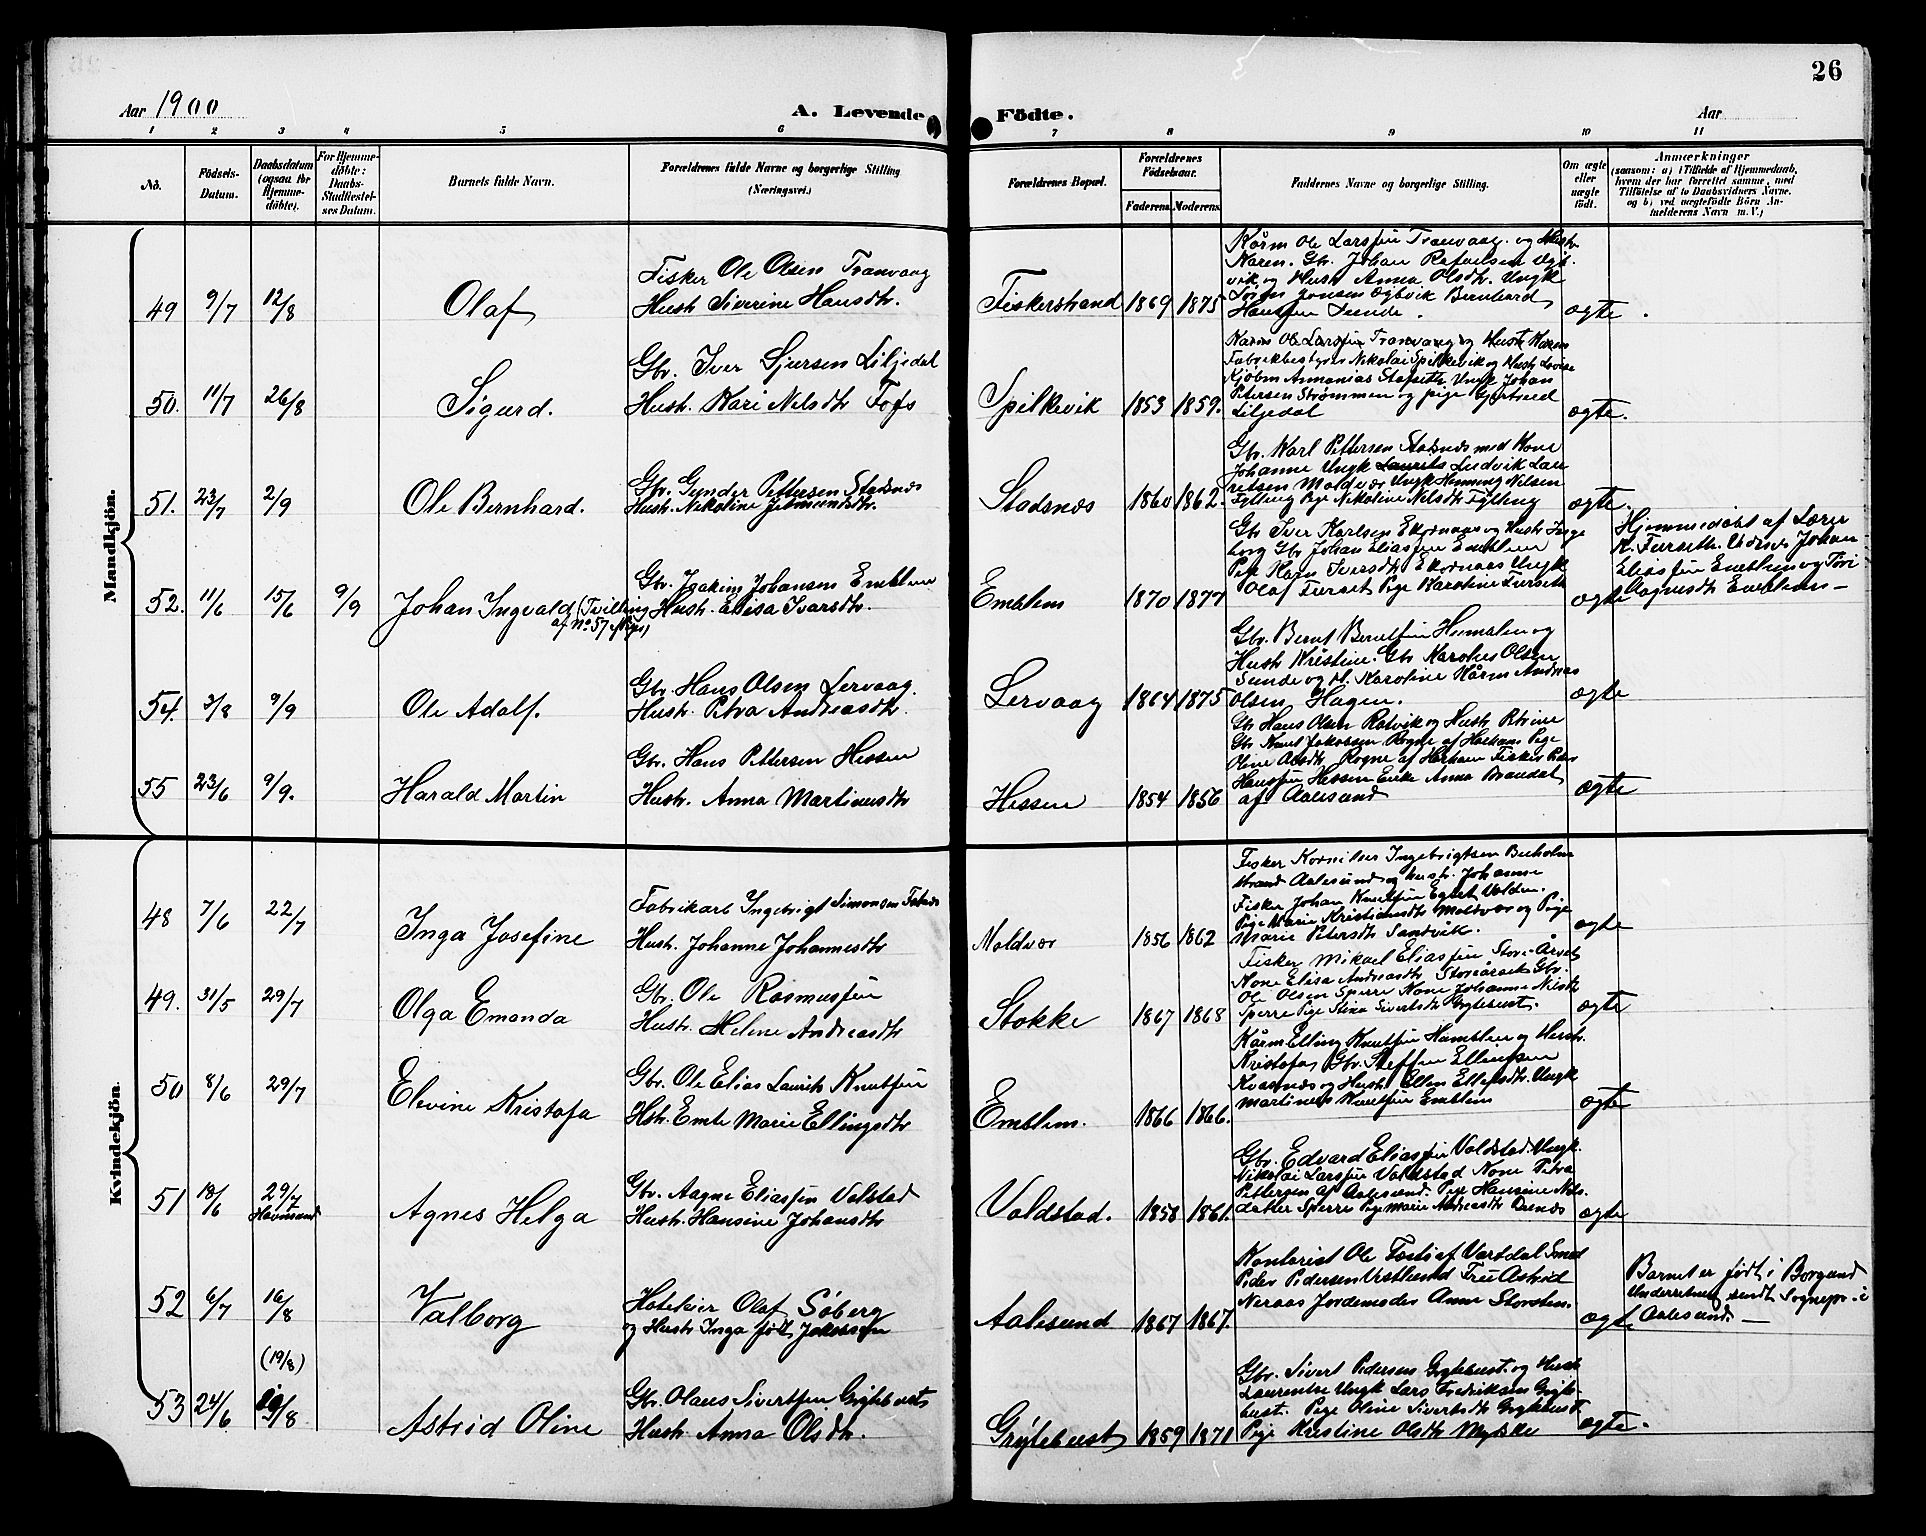 26
Aar 1900
A. Levende Födte.
Aar
1 2 3 4 5 6 7 8 9 10 11
No.
Födsels-
Datum.
Daabsdatum
(ogsaa for
Hjemme-
döbte).
For Hjemme-
döbte:
Daabs-
Stadfæstel-
ses Datum.
Barnets fulde Navn.
Forældrenes fulde Navne og borgerlige Stilling
(Næringsvei.)
Forældrenes Bopæl.
Forældrenes
Födselsaar.
Faderens. Moderens.
Faddernes Navne og borgerlige Stilling.
Om ægte
eller
uægte
födt.
Anmærkninger
(saasom: a) i Tilfælde af Hjemmedaab,
hvem der har forrettet samme, med
Tilföielse af to Daabsvidners Navne.
og b) ved uægtefödte Börn An-
melderens Navn m. V.)
Mandkjön.
49 9/7 12/8
Olaf
Fisker Ole Olsen Tranvaag
Hust. Siverine Hansdtr.
Fiskerstrand 1869 1875
Kårm Ole Larssen Tranvaag og Hustr.
Karen. Gbr. Johan
vik og Hust Anna Olsdtr. Ungk
Bernhard
ægte
50. 11/7 26/8
Sigurd.
Gbr. Iver Sjursen Liljedal
Hust. Kari Nilsdtr
Spilkevik 1853 1859.
Karm Ole Larssen Tranvaag og Hust Karen
Fabrikbestyrer Nikolai Spilkevik og Hust Lovise
Kjöbm Annanias Ungk Johan
Petersen Strømmen og pige
Liljedal
ægte.
51. 23/7 2/9
Ole Bernhard.
Gbr. Gunder Pettersen Stadsnes
Hust. Nikoline
Stadsnes 1860 1862.
Gbr. Karl Pettersen Stadsnes med Kone
Johanne Ungk Laurits Ludvik Lau-
ritsen Moldvær Ungk Henning Nilsen
Fylling Pige Nikoline Nilsdtr Fylling
ægte.
52. 11/6 15/6 9/9
Johan Ingvald (Tvilling
af No 57
Gbr. Joakim Johansen Emblem
Hust. Elisa Ivarsdtr.
Emblem 1870 1877
Gbr Iver Karlsen Ekornaas og Hustr Inge
borg Gbr Johan Eliassen Emblem
Pige Karn Iversdtr Ekornaas Ungk
Olaf Furset Pige Karoline Furseth
ægte
Hjemmedöbt af Lærer
K. Furseth. Vidner Johan
Eliassen Emblem og
Aagesdtr Emblem –
54. 3/8 9/9
Ole Adolf.
Gbr. Hans Olsen Lervaag.
Hust. Petra Andreasdtr.
Lervaag 1864 1875
Gbr. Bernt Berntsen Humblen og
Hust Kristine. Gbr Karolus Olsen
Sunde og H. Karoline Kårm Andreas
Olsen Hagen.
ægte
55 23/6 9/9.
Harald Martin
Gbr. Hans Pettersen Hessen
Hust. Anna Martinusdtr
Hessen 1854 1856
Gbr Hans Olsen Ratvik og Hustr Petrine
Gbr Knut Jakobsen Rogne af Harham Pige
Oline Rogne af Harham Fisker
Hanssen Hessen Enke Anna Brandal
af Aalesund
ægte
Kvindekjön.
48 7/6 22/7
Inga Josefine
Fabrikarb Ingebrigt Simonsen
Hust. Johanne Johannesdtr
Moldvær 1856 1862
Fisker Kornilius Ingebrigtsen Buholm
strand Aalesund og Hustr. Johanne
Fisker Johan Knutsen Volden.
Pige Marie Kristiansdtr Moldvær og Pige
Marie Petersdtr Sandvik.
ægte
49. 31/5 29/7
Olga Emanda
Gbr. Ole Rasmussen
Hustr. Helene Andreasdtr
Stokke 1867 1868
Fisker Mikael Eliassen Stor-Årset
Kone Elisa Andreasdtr Storeårset Gbr.
Ole Olsen Sperre Kone Johanne Nilsdtr
Sperre Pige Stina Sivertsdtr Grytebust.
ægte
50 8/6 29/7
Elevine Kristofa
Gbr. Ole Elias Laurits Knutsen
Hstr. Emte Marie Ellingsdtr
Emblem. 1866 1866.
Kårm Elling Knutsen Humblen og Hustr.
Kristofa, Gbr. Steffen Ellingsen
Kvasnes og Hustr Ellen Ungk
Martinus Knutsen Emblem
ægte
51 18/6 29/7
Agnes Helga
Gbr. Aagne Eliassen Valstad
Hustr. Hansine Johansdtr
Valdstad. 1858 1861.
Gbr. Edvard Eliassen Valdstad. Ungk.
Nikolai Larssen Valdstad Kone Petra
Pettersen af Aalesund. Pige Hansine Nils-
datter Sperre Pige Marie Andreasdtr
ægte
52 6/7 16/8
Valborg
Hoteleier Olaf Söberg
og Hustr Inga født
Aalesund 1867 1867.
Kontorist Ole af Vartdal Smed
Peder Pedersen Fru Astrid
Jordemoder Anne
ægte
Barnet er født i Borgund
Underretning sendt Sognepr. i
Aalesund. –
53 24/6 (19/8) 19/8
Astrid Oline
Gbr. Olaus Sivertsen Grytebust
Hust Anna Olsdtr.
Grytebust 1859 1871
Gbr. Sivert Pedersen Grytebust. og Hust
Laurentse Ungk Lars Fredriksen Gryte-
bust. Pige Oline Sivertsdtr Grytebust
Pige Kristine Olsdtr Myklebust
ægte.